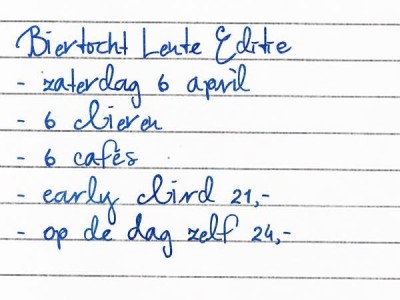 Biertocht Lente Editie
- zaterdag 6 april
- 6 bieren
- 6 cafés
- early bird 21,-
- op de dag zelf 24,-